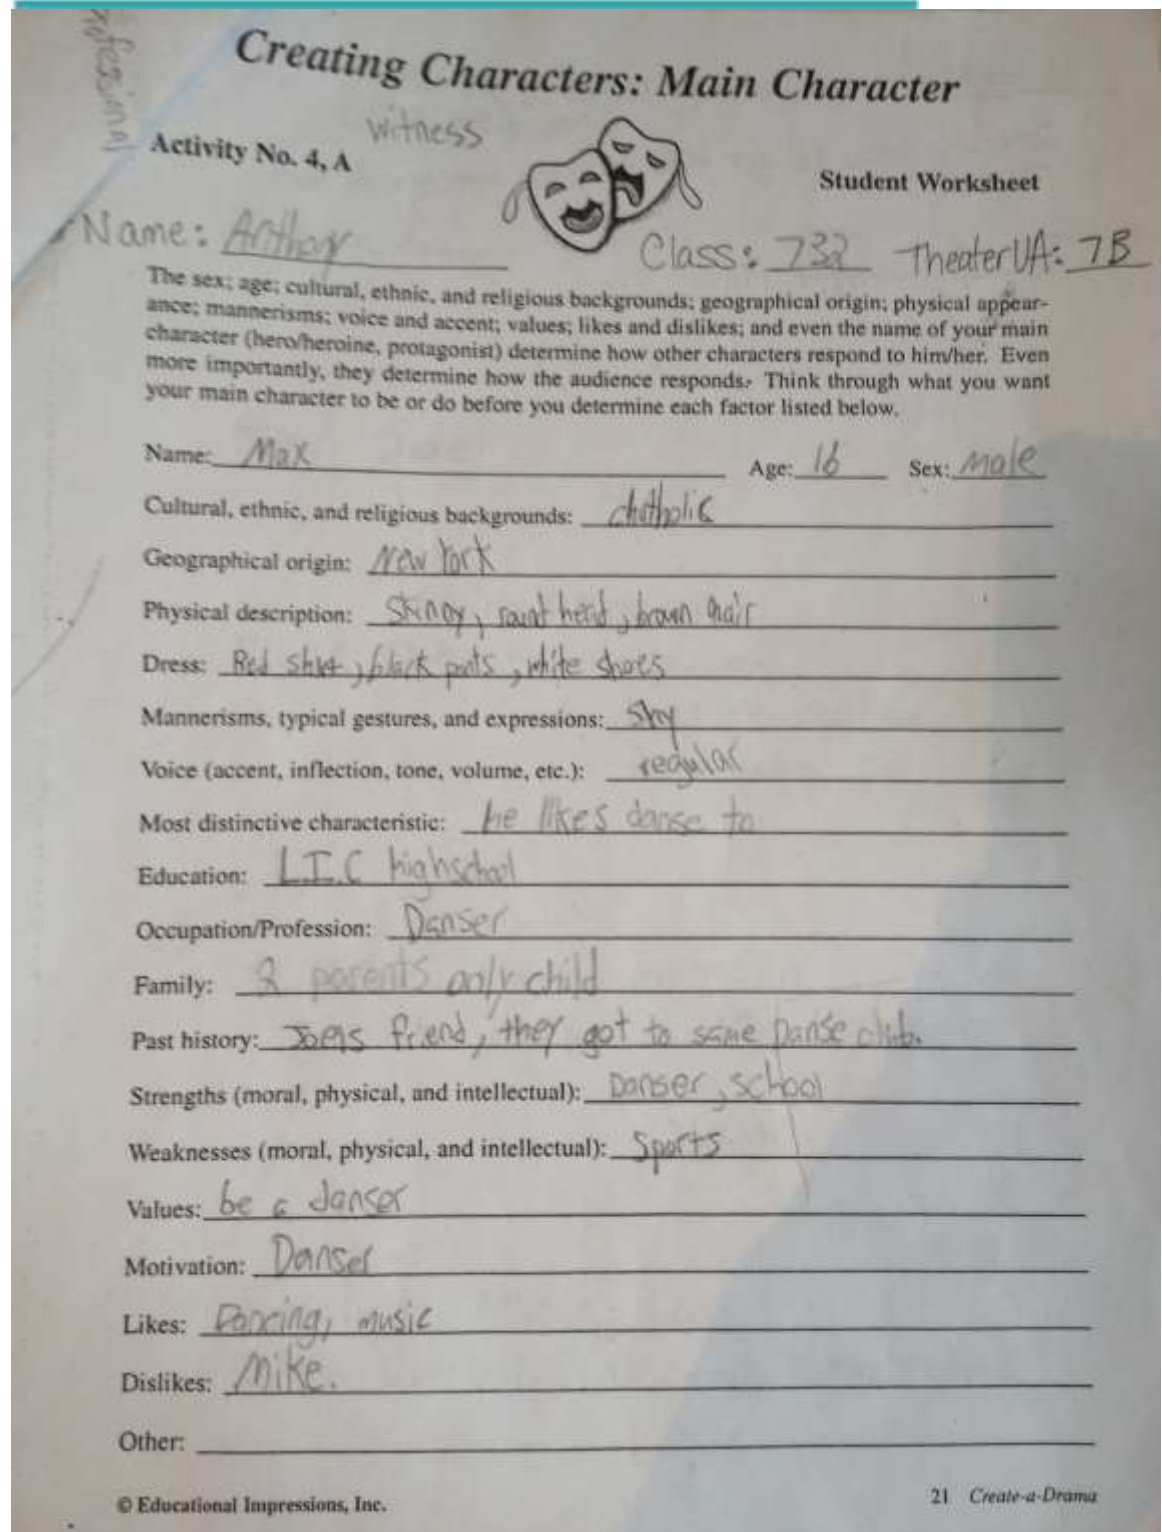 Creating Characters: Main Character
witness
Activity No. 4, A
Student Worksheet
Name: Anthony
Class: 732 Theater UA: 7B
The sex; age; cultural, ethnic, and religious backgrounds; geographical origin; physical appear-
ance; mannerisms; voice and accent; values; likes and dislikes; and even the name of your main
character (hero/heroine, protagonist) determine how other characters respond to him/her. Even
more importantly, they determine how the audience responds. Think through what you want
your main character to be or do before you determine each factor listed below.
Name: Max Age: 16 Sex: Male
Cultural, ethnic, and religious backgrounds: chatholic
Geographical origin: New York
Physical description: Skinny, head, brown hair
Dress: Red shirt, black pants, white shoes
Mannerisms, typical gestures, and expressions: Shy
Voice (accent, inflection, tone, volume, etc.): regular
Most distinctive characteristic: he likes danse to
Education: L.I.C highschool
Occupation/Profession: Danser
Family: 2 parents only child
Past history: Joels friend, they got to same Danse club.
Strengths (moral, physical, and intellectual): Danser, school
Weaknesses (moral, physical, and intellectual): Sports
Values: be a danser
Motivation: Danser
Likes: Dancing, music
Dislikes: Mike.
Other:
© Educational Impressions, Inc.
21 Create-a-Drama